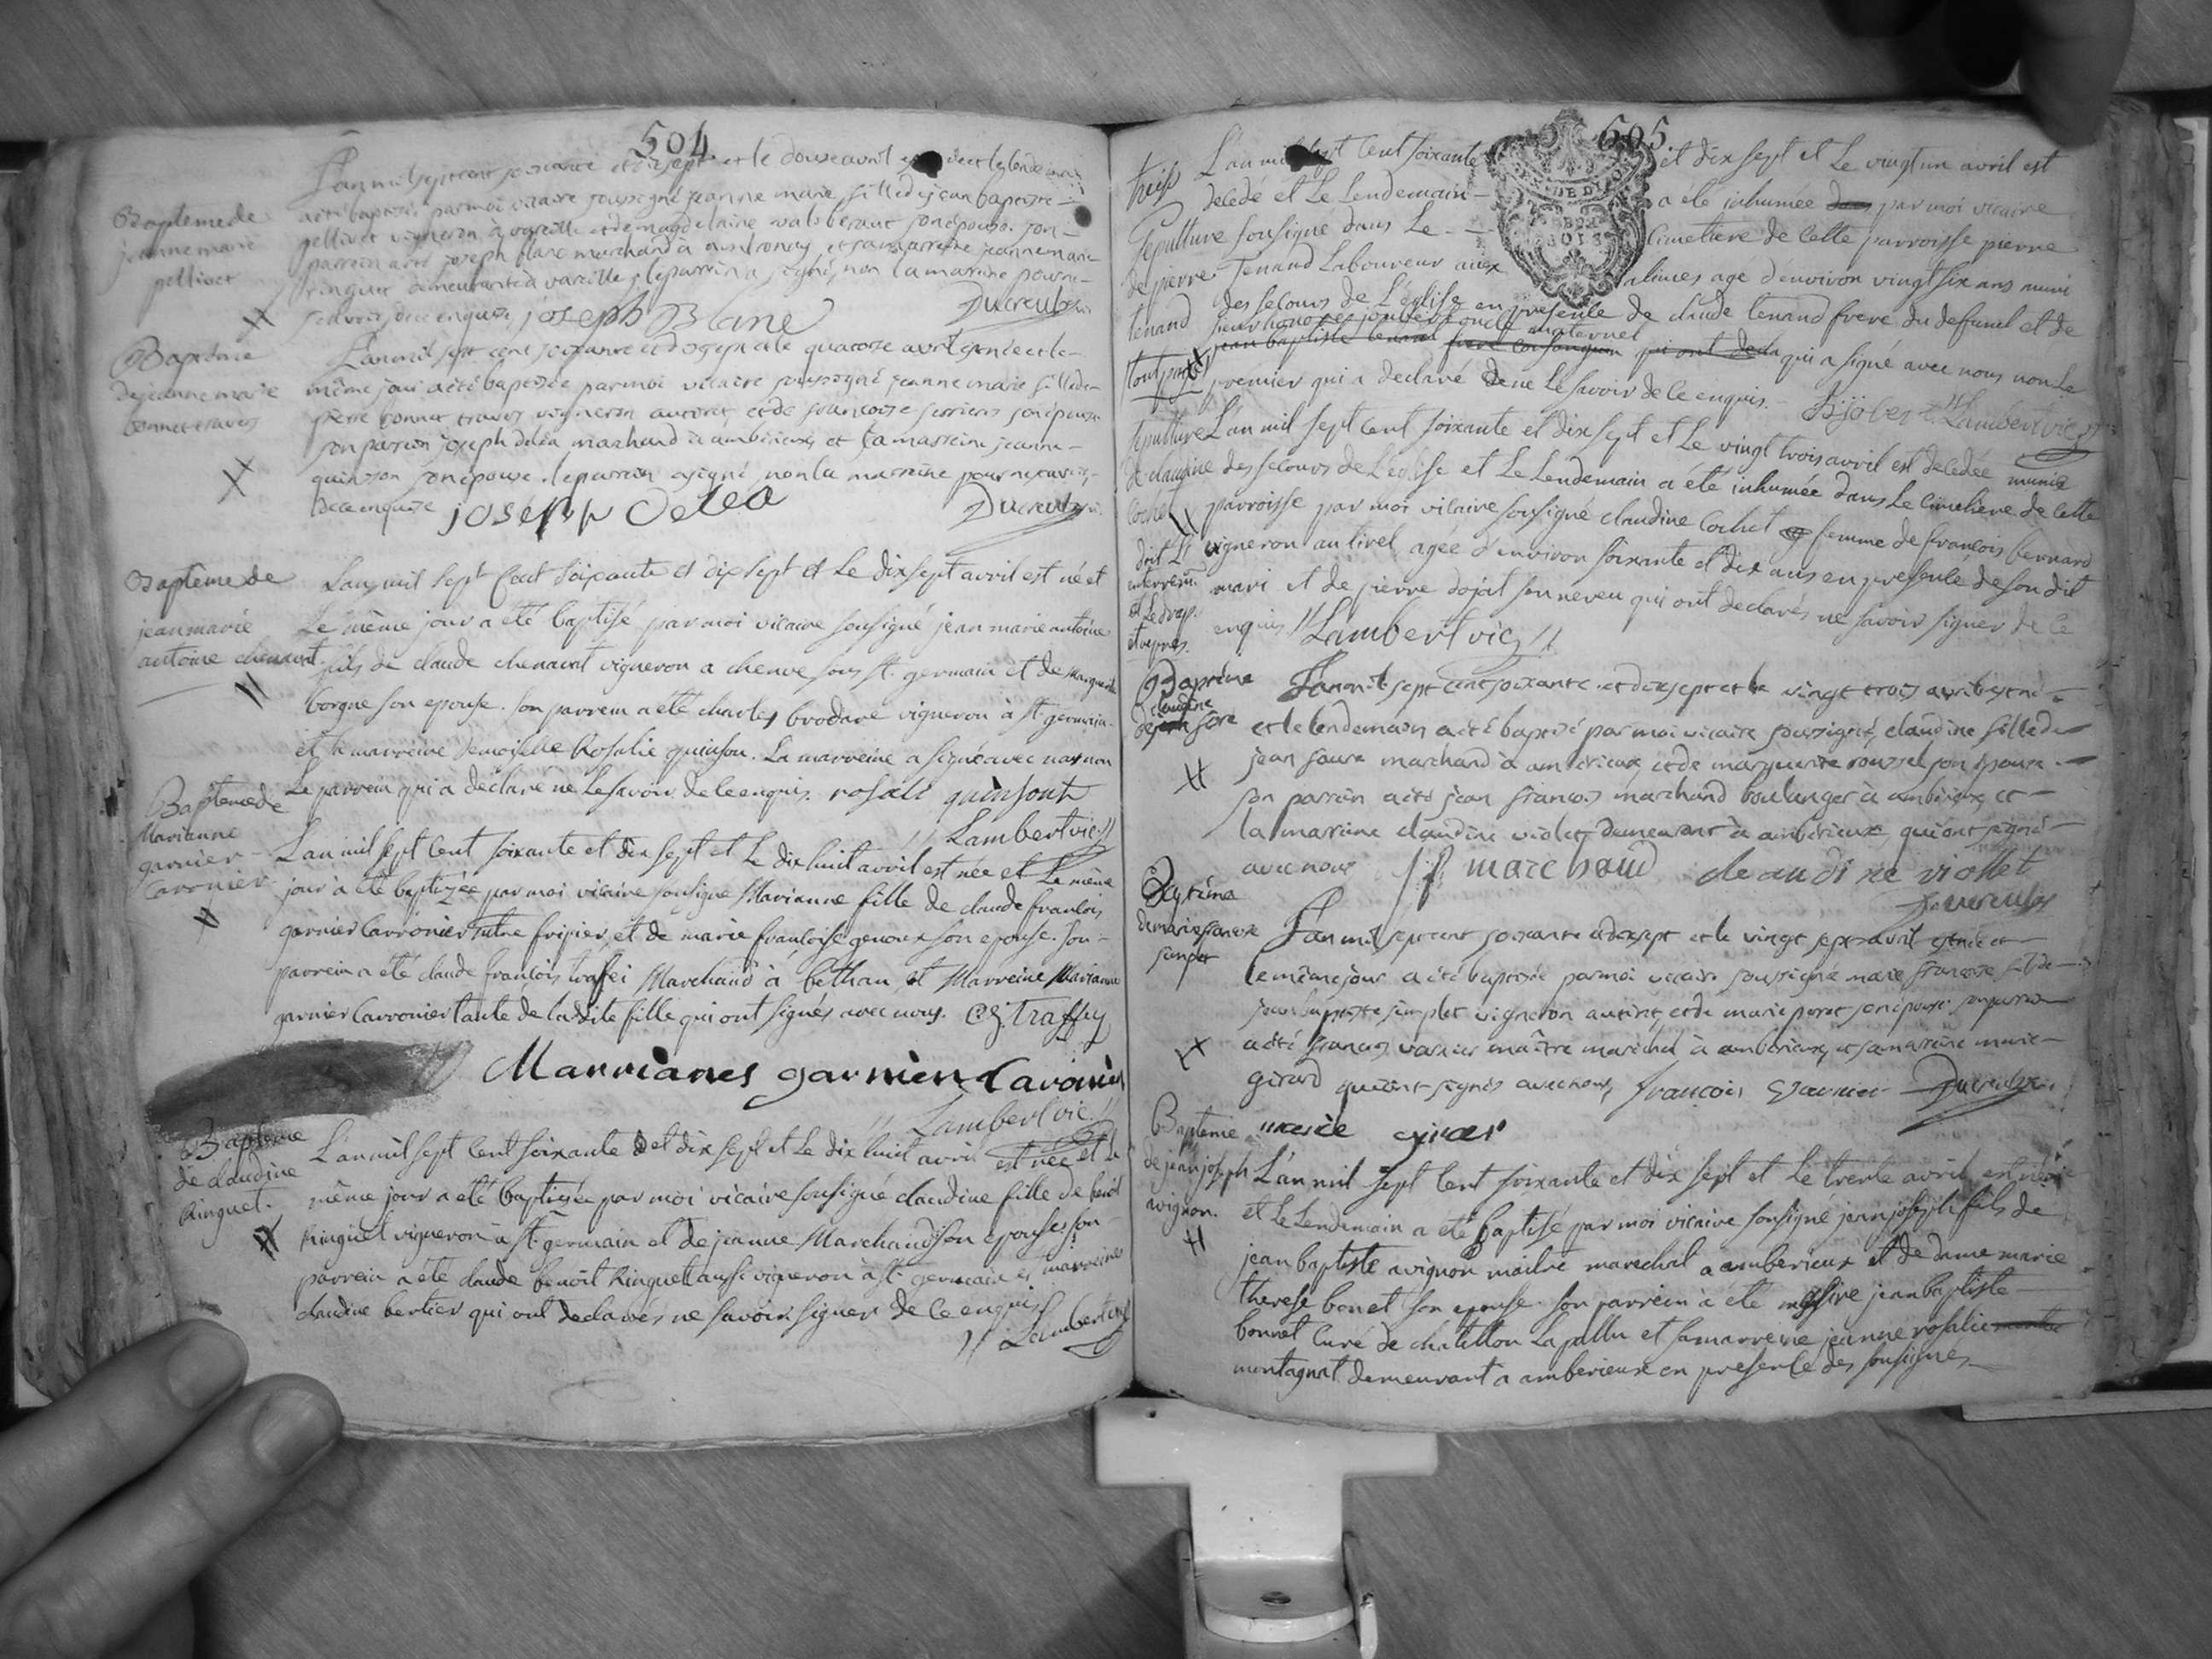 504
L'an mil sept cent soixante et dix sept et le douze avril est née et le lendemain
a été baptisée par moi vicaire soussigné jeanne marie fille de jean baptiste
pellivet vigneron à vareille et de magdelaine son épouse. son
parrein a été joseph blanc marchand à et sa marreine jeanne marie
ringuet demeurante à vareille, le parrein a signé, non la marreine pour ne
sçavoir, de ce enquise, joseph Blanc Ducreux
Baptême de
jeanne marie
pellivet
L'an mil sept cent soixante et dix sept et le quatorze avril est née et le
même jour a été baptisée par moi vicaire soussigné jeanne marie fille de
pierre bonnet travers vigneron au tiret, et de francoise son épouse
son parrein joseph deléa marchand à ambérieux et sa marreine jeanne
quinson son épouse. le parrein a signé non la marreine pour ne sçavoir,
de ce enquise joseph Delea Ducreux
Baptême
de jeanne marie
bonnet travers
Baptême de
jean marie
antoine chenavat
L'an mil sept cent soixante et dix sept et Le dix sept avril est né et
Le même jour a été baptisé par moi vicaire sousigné jean marie antoine
fils de claude chenavat vigneron a chenve sous st. germain et de Marguerite
borgne son epouse. son parrein a été charles brodare vigneron à st. germain.
et la marreine demoiselle Rosalie quinson. La marreine a signé avec nous non
Le parrein qui a déclaré ne Le savoir de ce enquis. rosali quinsont
Lambert vic.
Baptême de
Marianne
garnier
Carronier
L'an mil sept cent soixante et dix sept et Le dix huit avril est née et Le même
jour à été baptizée par moi vicaire sousigné Marianne fille de claude francois
garnier Carronier fripier, et de marie francoise genoux son epouse. son
parrein a été claude francois traffei Marchand à bethan et Marreine Marianne
garnier Carronier tante de la dite fille qui ont signés avec nous. C. f. Traffey
Marrianes garnier Caronier
Lambert vic.
Baptême
de claudine
Ringuet.
L'an mil sept cent soixante et dix sept et Le dix huit avril est née et le
même jour a été baptisée par moi vicaire sousigné claudine fille de benoit
Ringuet vigneron à st. germain et de jeanne Marchand son epouse. son
parrein a été claude benoit Ringuet aussi vigneron à st. germain et marreine
claudine bertier qui ont déclarés ne savoir signer de ce enquis
Lambert vic.
605.
L'an mil sept cent soixante et dix sept et Le vingt un avril est
decedé et Le Lendemain a été inhumée dans par moi vicaire
sousigné dans Le cimetiere de cette parroisse pierre
Tenand Laboureur aux alimes agé d'environ vingt six ans muni
des secours de L'église en presence de claude tenand frere du defunct et de
oncle maternel
jean baptiste tenand qui ont qui a signé avec nous non Le
premier qui a declaré de ne Le savoir de ce enquis. Lambert vic.
Sepulture
de pierre
tenand
Sepulture
de claudine
Cochet
L'an mil sept cent soixante et dix sept et Le vingt trois avril est decedée munie
des secours de L'église et Le Lendemain a été inhumée dans Le cimetiere de cette
parroisse par moi vicaire sousigné claudine Cochet femme de francois bernard
vigneron au tiret agée d'environ soixante et dix ans en presence de son dit
mari et de pierre dojat son neveu qui ont declarés ne savoir signer de ce
enquis Lambert vic.
Baptême
claudine
de jean fore
L'an mil sept cent soixante et dix sept et le vingt trois avril est né
et le lendemain a été baptisé par moi vicaire soussigné, claudine fille de
jean faure marchand à ambérieux, et de marguerite roussel son épouse.
son parrein a été jean francois marchand boulanger à ambérieux et
la marreine claudine violet, demeurant à ambérieux, qui ont signé
avec nous j f marchand claudine viollet
Ducreux
Baptême
de marie francoise
simplet
L'an mil sept cent soixante et dix sept et le vingt sept avril est née et
le même jour a été baptisée par moi vicaire soussigné marie francoise fille de
jean baptiste simplet vigneron au tiret, et de marie peret son épouse son parrein
a été francois varnier maître maréchal à ambérieux, et sa marreine marie
girard qui ont signés avec nous, francois varnier Ducreux
marie girar
Baptême
de jean joseph
avignon.
L'an mil sept cent soixante et dix sept et Le trente avril est né
et Le Lendemain a été baptisé par moi vicaire sousigné jean joseph fils de
jean baptiste avignon maitre marechal a amberieux et de dame marie
therese bonet son epouse. son parrein à été messire jean baptiste
bonnet curé de chatillon La pallu et sa marreine jeanne rosalie
montagnat demeurant a amberieux en presence des sousignés